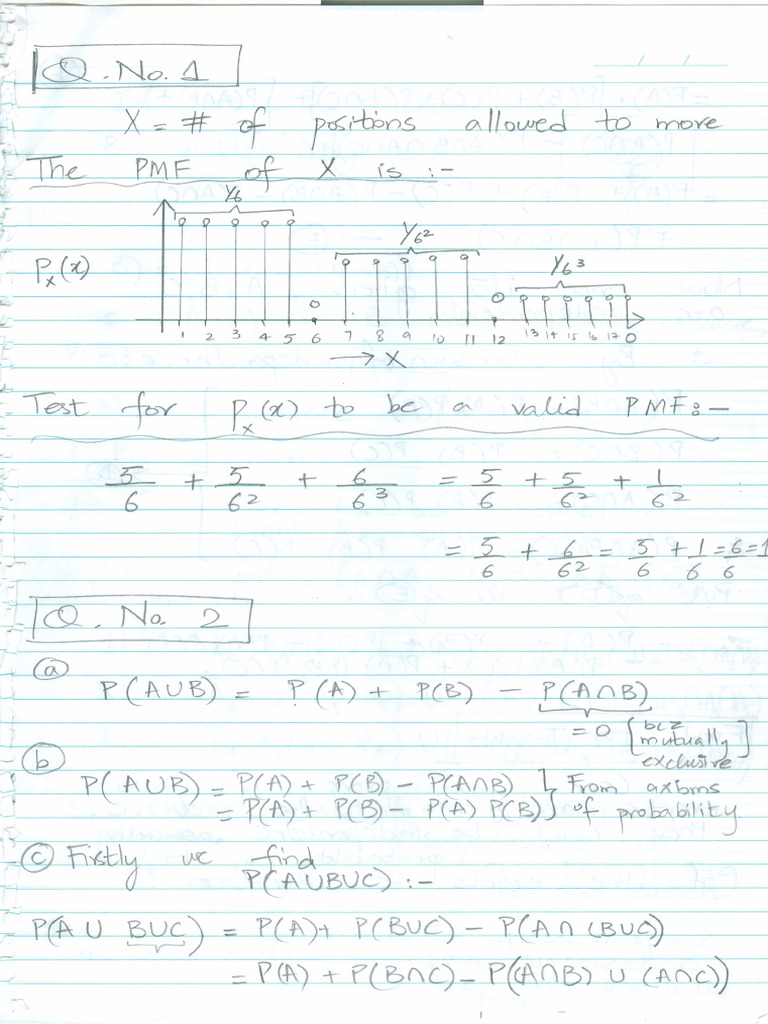 Q. No. 1
X = # of positions allowed to more
The PMF of X is :-
1/6
1/6²
1/6³
Pₓ(x)
0 0
1 2 3 4 5 6 7 8 9 10 11 12 13 14 15 16 17 0
→ X
Test for Pₓ(x) to be a valid PMF:-
5/6 + 5/6² + 6/6³ = 5/6 + 5/6² + 1/6²
= 5/6 + 6/6² = 5/6 + 1/6 = 6/6 = 1
Q. No. 2
(a)
P(A∪B) = P(A) + P(B) - P(A∩B)
= 0 [bcz mutually exclusive]
(b)
P(A∪B) = P(A) + P(B) - P(A∩B) } From axioms
= P(A) + P(B) - P(A) P(B) } of probability
(c) Firstly we find
P(A∪B∪C) :-
P(A ∪ B∪C) = P(A) + P(B∪C) - P(A∩(B∪C))
= P(A) + P(B∩C) - P((A∩B) ∪ (A∩C))